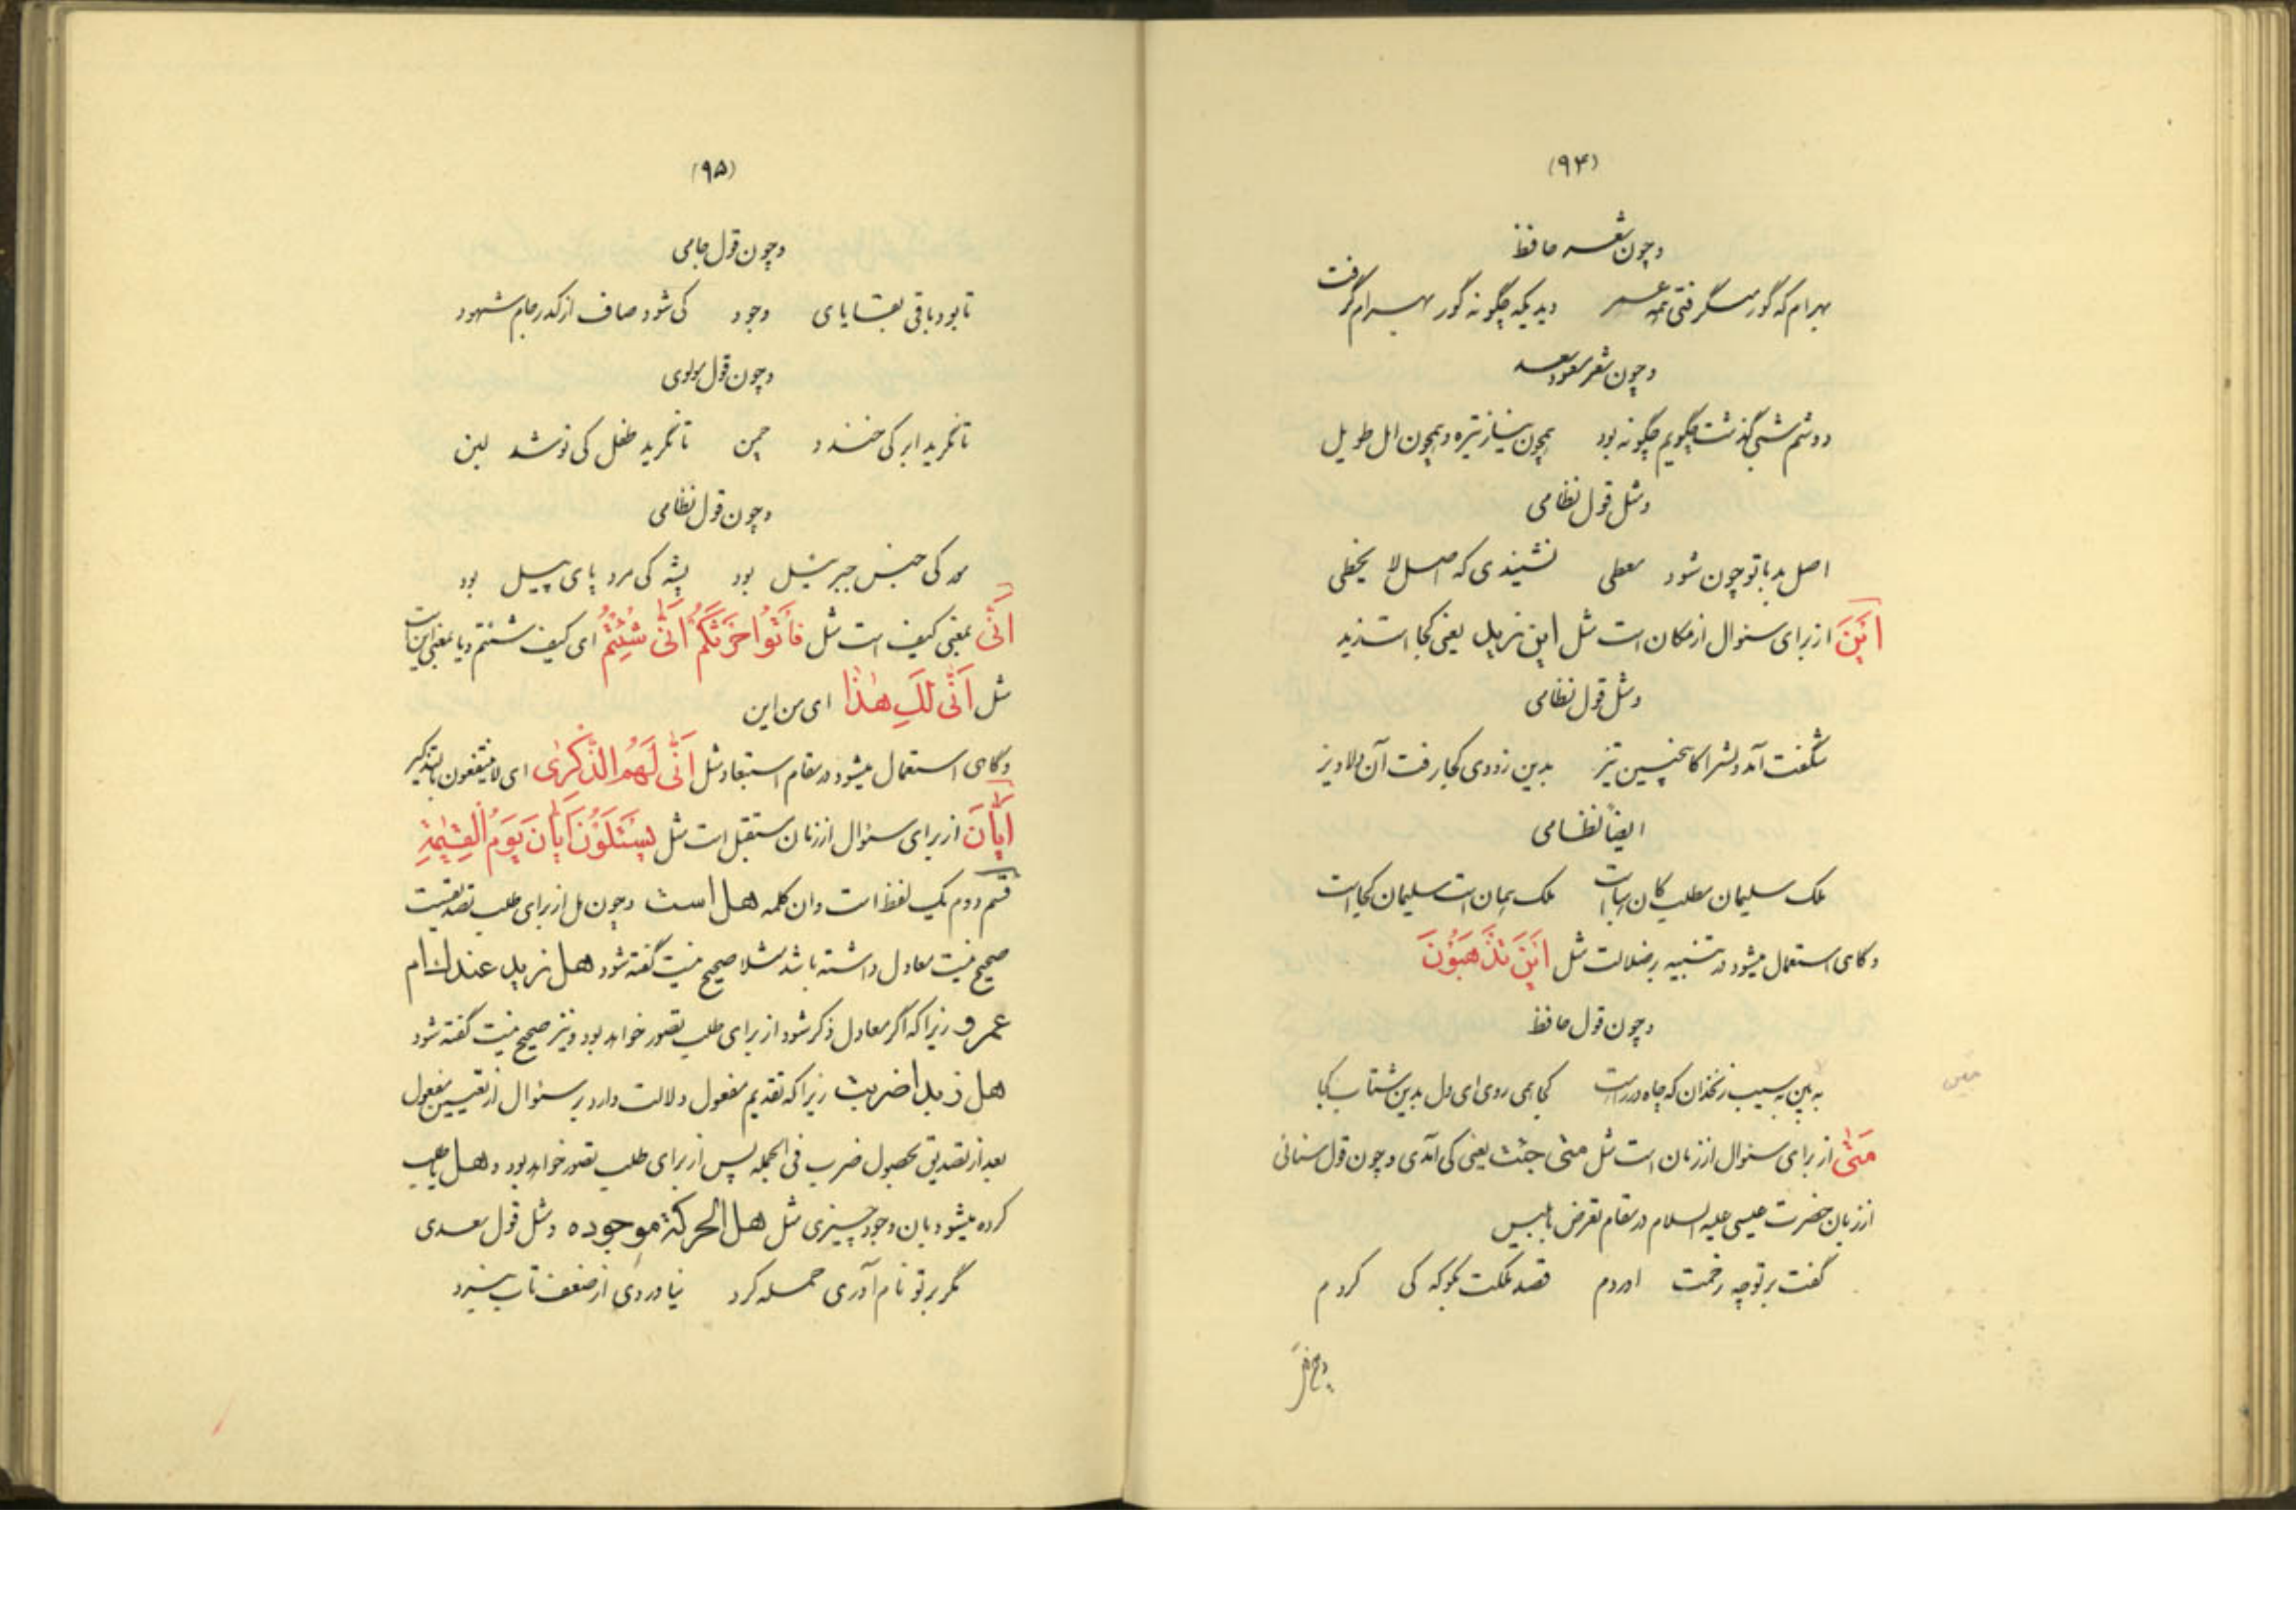 (۹۴)
وچون شعر حافظ
بهرام که گور میگرفتی همه عمر دیدی که چگونه گور بهرام گرفت
وچون شعر مسعود سعد
دوشم شبی گذشت چگویم چگونه بود همچون نیاز تیره و همچون امل طویل
ومثل قول نظامی
اصل بد با تو چون شود معطی نشنیدی که اصل لا یخطی
اَیْنَ از برای سئوال از مکان است مثل این زید یعنی کجا است زید
ومثل قول نظامی
شگفت آمد دلش را کاینچنین تیز بدین زودی کجا رفت آن دلاویز
ایضاً نظامی
ملک سلیمان مطلب کان هباست ملک همان است سلیمان کجاست
وگاهی استعمال میشود در تنبیه بر ضلالت مثل اَیْنَ تَذْهَبُونَ
وچون قول حافظ
به بین به سیب زنخدان که چاه در راه است کجا همی روی ای دل بدین شتاب کجا
مَتٰی از برای سئوال از زمان است مثل متی جئت یعنی کی آمدی وچون قول سنائی
از زبان حضرت عیسی علیه السلام در مقام تعرض بابلیس
گفت بر تو چه زحمت اوردم قصد ملکت بگو که کی کردم
(۹۵)
وچون قول جامی
تا بود باقی بقایای وجود کی شود صاف از کدر جام شهود
وچون قول مولوی
تا نگرید ابر کی خندد چمن تا نگرید طفل کی نوشد لبن
وچون قول نظامی
مور کی جنس جبرئیل بود پشه کی مرد پای پیل بود
اَنّٰی بمعنی کیف است مثل فَأْتُوا حَرْثَکُمْ اَنّٰی شِئْتُمْ ای کیف شئتم ویا بمعنی این است
مثل اَنّٰی لَکِ هٰذَا ای من این
وگاهی استعمال میشود در مقام استبعاد مثل اَنّٰی لَهُمُ الذِّکْرٰی ای لا ینتفعون بالتذکیر
اَیّٰانَ از برای سئوال از زمان مستقبل است مثل یَسْئَلُونَ اَیّٰانَ یَوْمُ الْقِیٰمَةِ
قسم دوم یک لفظ است وان کلمه هل است وچون هل از برای طلب تصدیقست
صحیح نیست معادل داشته باشد مثلا صحیح نیست گفته شود هل زید عندك ام
عمرو زیرا که اگر معادل ذکر شود از برای طلب تصور خواهد بود و نیز صحیح نیست گفته شود
هل زیدا ضربت زیرا که تقدیم مفعول دلالت دارد بر سئوال از تعیین مفعول
بعد از تصدیق بحصول ضرب فی الجمله پس از برای طلب تصور خواهد بود و هل یا طلب
کرده میشود بان وجود چیزی مثل هل الحرکة موجوده ومثل قول سعدی
مگر بر تو نام آوری حمله کرد نیاوردی از ضعف تاب نبرد